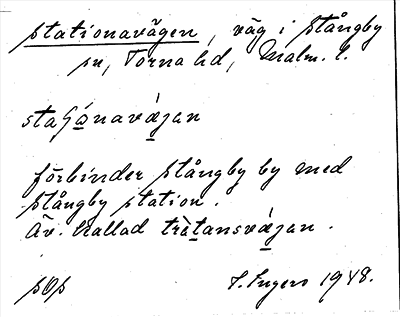 Stationavägen, väg i Stångby
sn, Torna hd, Malm. l.
staʃónavæ̀jan
förbinder Stångby by med
Stångby station.
Äv. kallad trètansvæ̀jan.
I. Ingers 1948.